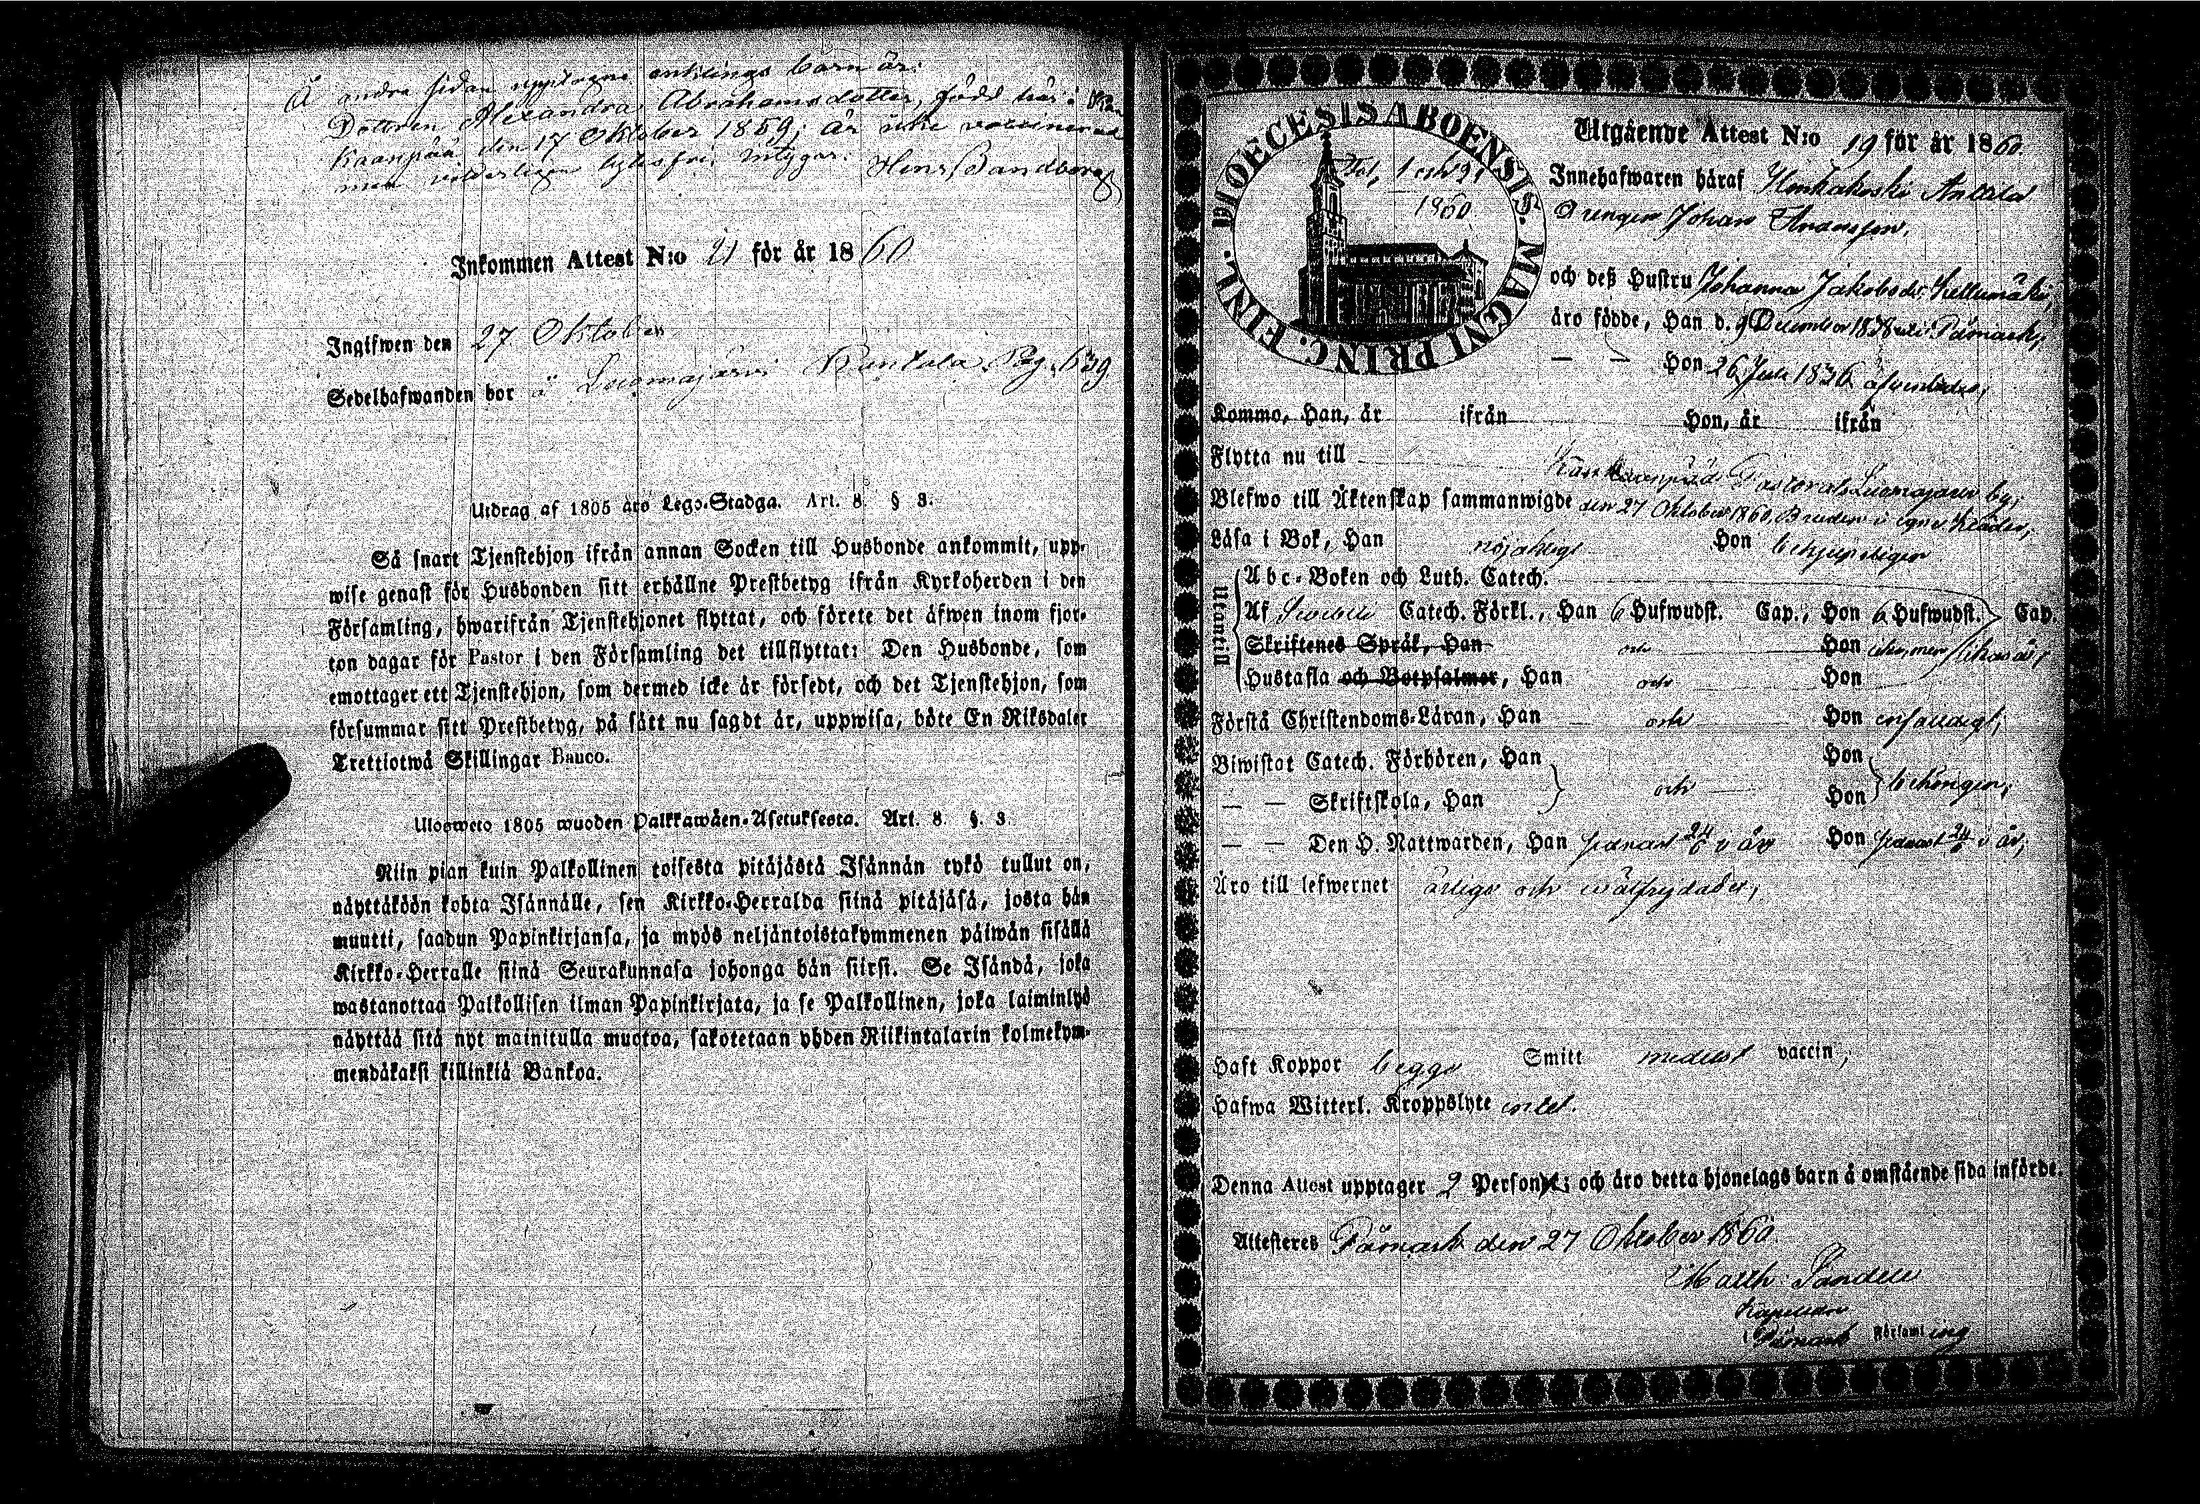 Å andra sidan upptagne enklings barn är:
Dottren Alexandra Abrahamsdotter, född här i
Kaanpää den 17 Oktober 1859, är icke vaccinerad
men veterligen lytesfri intygar: Henr Sandberg
Inkommen Attest N:o 21 för år 1860
Ingifwen den 27 Oktober
Sedelhafwanden bor i Luomajärvi Pag. 639
Utdrag af 1805 års Lego-Stadga. Art. 8. § 3.
Så snart Tjenstehjon ifrån annan Socken till Husbonde ankommit, upp-
wise genast för Husbonden sitt erhållne Prestbetyg ifrån Kyrkoherden i den
Församling, hwarifrån Tjenstehjonet flyttat, och förete det äfwen inom fjor-
ton dagar för Pastor i den Församling det tillflyttat: Den Husbonde, som
emottager ett Tjenstehjon, som dermed icke är försedt, och det Tjenstehjon, som
försummar sitt Prestbetyg, på sätt nu sagdt är, uppwisa, böte En Riksdaler
Trettiotwå Skillingar Banco.
Ulosweto 1805 wuoden Palkkawäen-Asetuksesta. Art. 8. §. 3.
Niin pian kuin Palkollinen toisesta pitäjästä Isännän tykö tullut on,
näyttäköön kohta Isännälle, sen Kirkko-Herralda siinä pitäjäsä, josta hän
muutti, saadun Papinkirjansa, ja myös neljäntoistakymmenen päiwän sisällä
Kirkko-Herralle siinä Seurakunnasa johonga hän siirsi. Se Isändä, joka
wastanottaa Palkollisen ilman Papinkirjata, ja se Palkollinen, joka laiminlyö
näyttää sitä nyt mainitulla muotoa, sakotetaan yhden Riikintalarin kolmekym-
mendäkaksi killinkiä Bankoa.
DIOECESIS ABOENSIS. MAGNI PRINC. FINL.
1860
Utgående Attest N:o 19 för år 1860.
Innehafwaren häraf Honkakoski Anttila
Drengen Johan Fransson,
och deß Hustru Johanna Jakobsdr Kellumäki,
äro födde, Han d. 9 December 1838 uti Påmark,
— — Hon 26 Juli 1836 äfvenledes,
Kommo, Han, år ifrån Hon, år ifrån
Flytta nu till Kankaanpää Pastorats Luomajärvi by;
Blefwo till Äktenskap sammanwigde den 27 Oktober 1860, Bruden i egna kläder;
Läsa i Bok, Han nöjaktigt Hon behjelpligen
Utantill
Abc-Boken och Luth. Catech.
Af Svebelii Catech. Förkl., Han 6 Hufwudst. Cap., Hon 6 Hufwudst. Cap.
Skriftenes Språk, Han och Hon
Hustafla och Botpsalmer, Han och Hon
Förstå Christendoms-Läran, Han och Hon enfaldigt;
Biwistat Catech. Förhören, Han Hon
och behörigen;
— — Skriftskola, Han Hon
— — Den H. Nattwarden, Han senast 24/6 i år Hon senast 24/6 i år;
Äro till lefwernet ärliga och wälfrejdade;
Haft Koppor begge Smitt medelst vaccin;
Hafwa Witterl. Kroppslyte intet.
Denna Attest upptager 2 Person; och äro detta hjonelags barn å omstående sida införde.
Attesteras Påmark den 27 Oktober 1860
Matth: Sandell
Kapellan
Påmark Församling